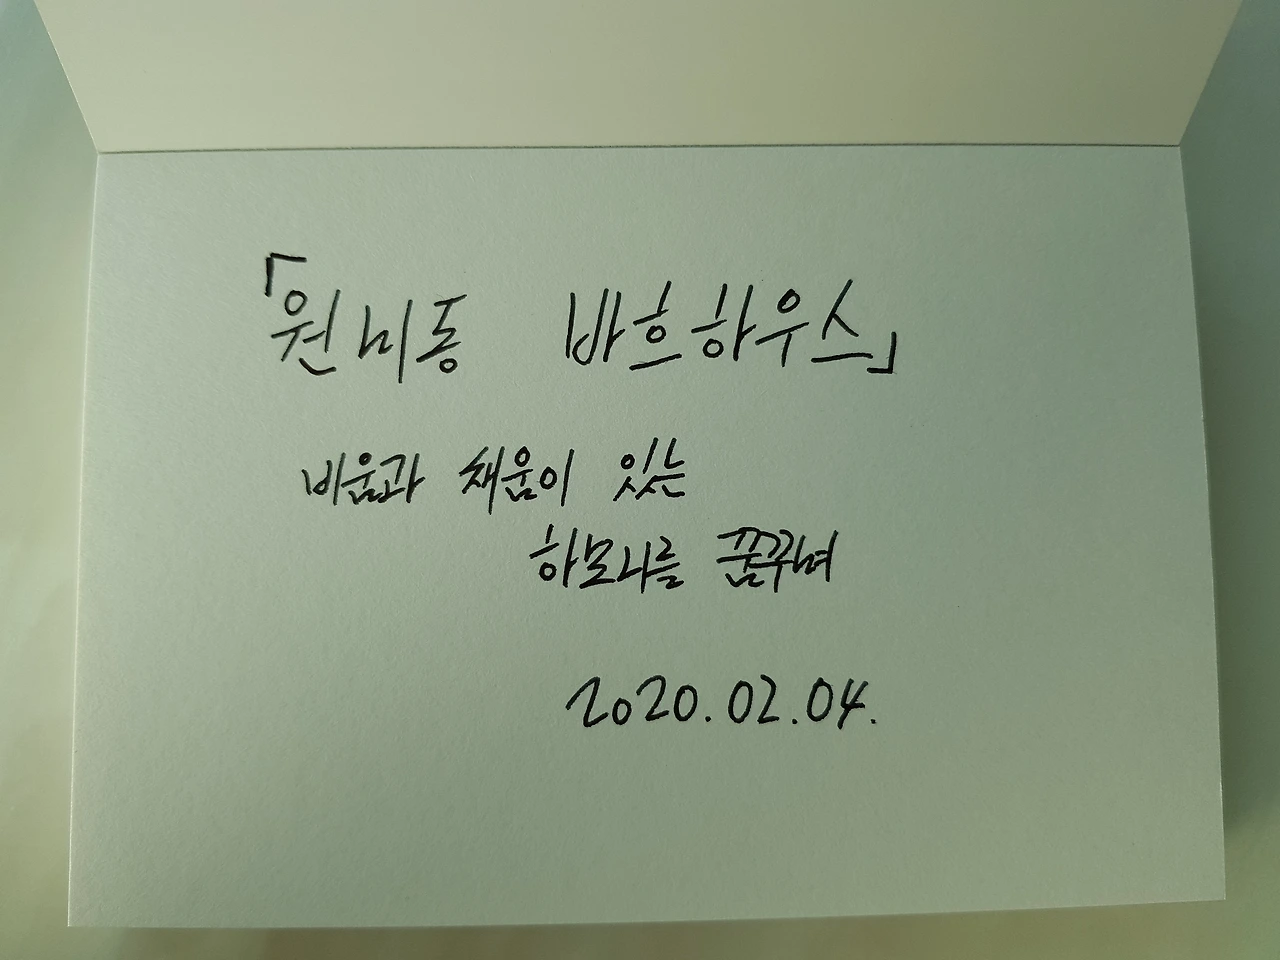 「원미동 바흐하우스」
비움과 채움이 있는
하모니를 꿈꾸며
2020.02.04.